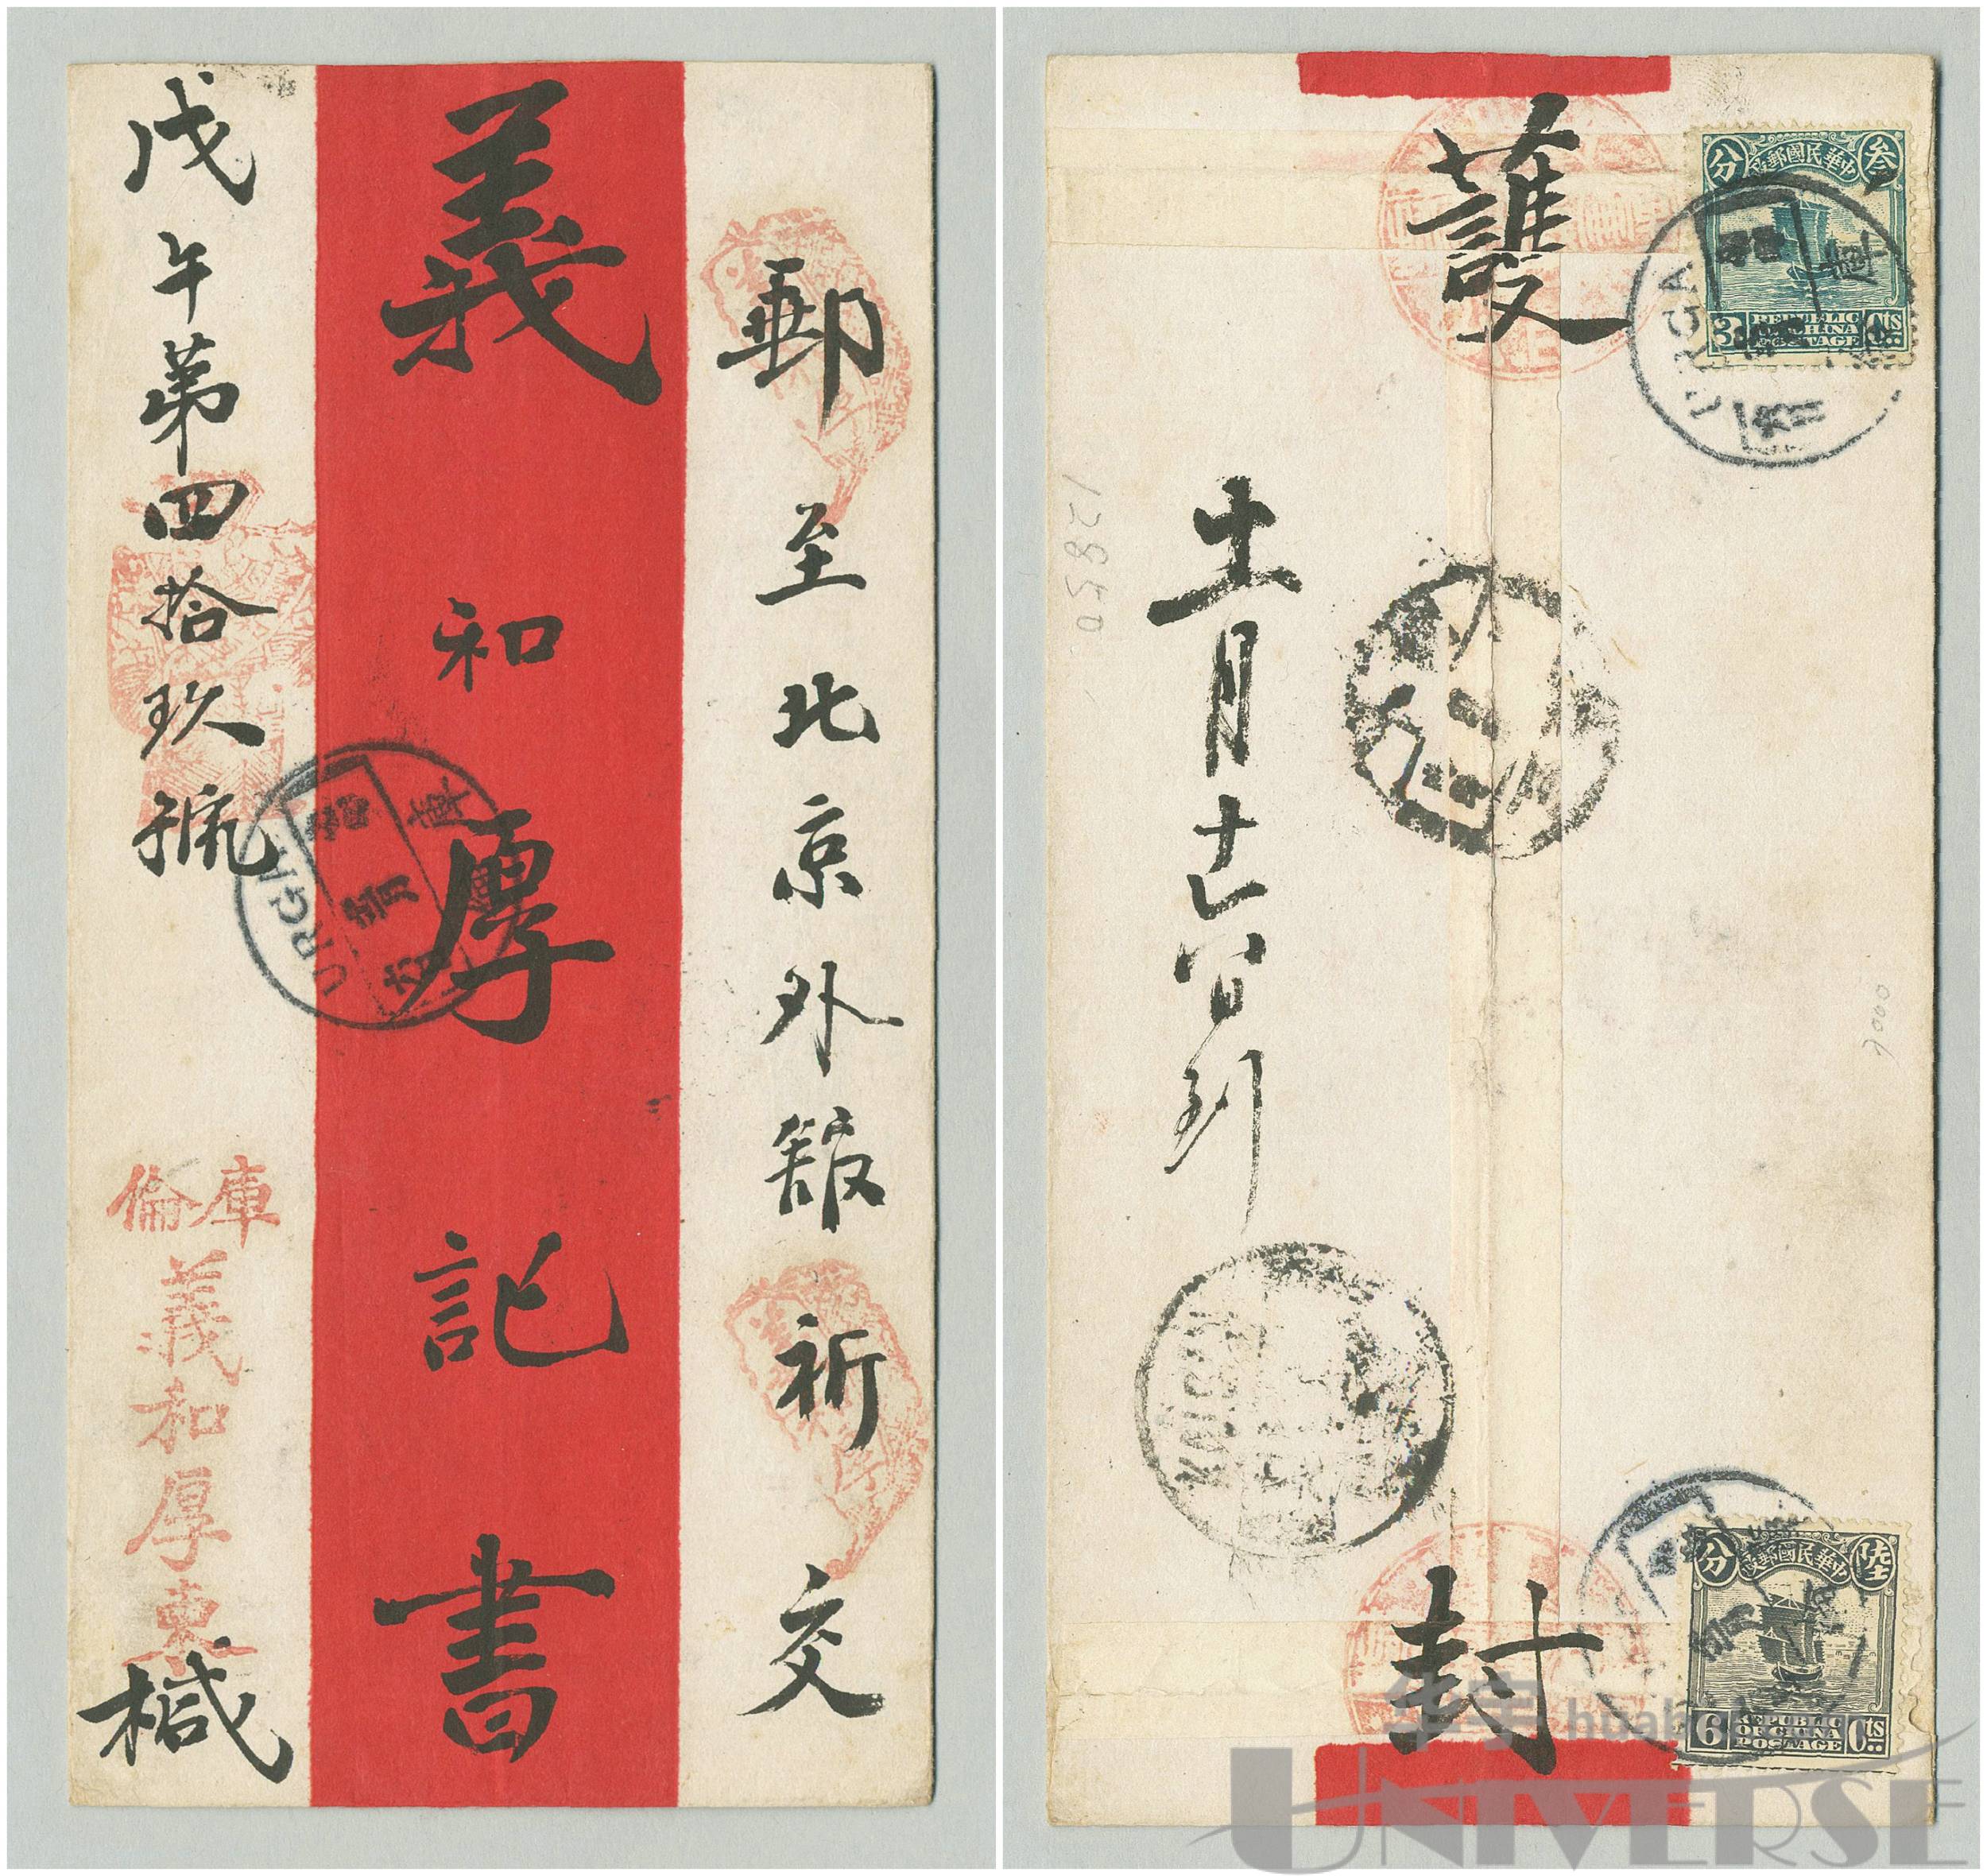 郵至北京外舘祈交
義和厚記書
戊午第四拾玖號
庫倫
義和厚柬
椷
URGA
護
封
十一月十七日到
中華民國郵政
叁
分
3
REPUBLIC
OF CHINA
POSTAGE
Cts
URGA
12850
7000
KALGAN
中華民國郵政
陸
分
6
REPUBLIC
OF CHINA
POSTAGE
Cts
华宇
UNIVERSE